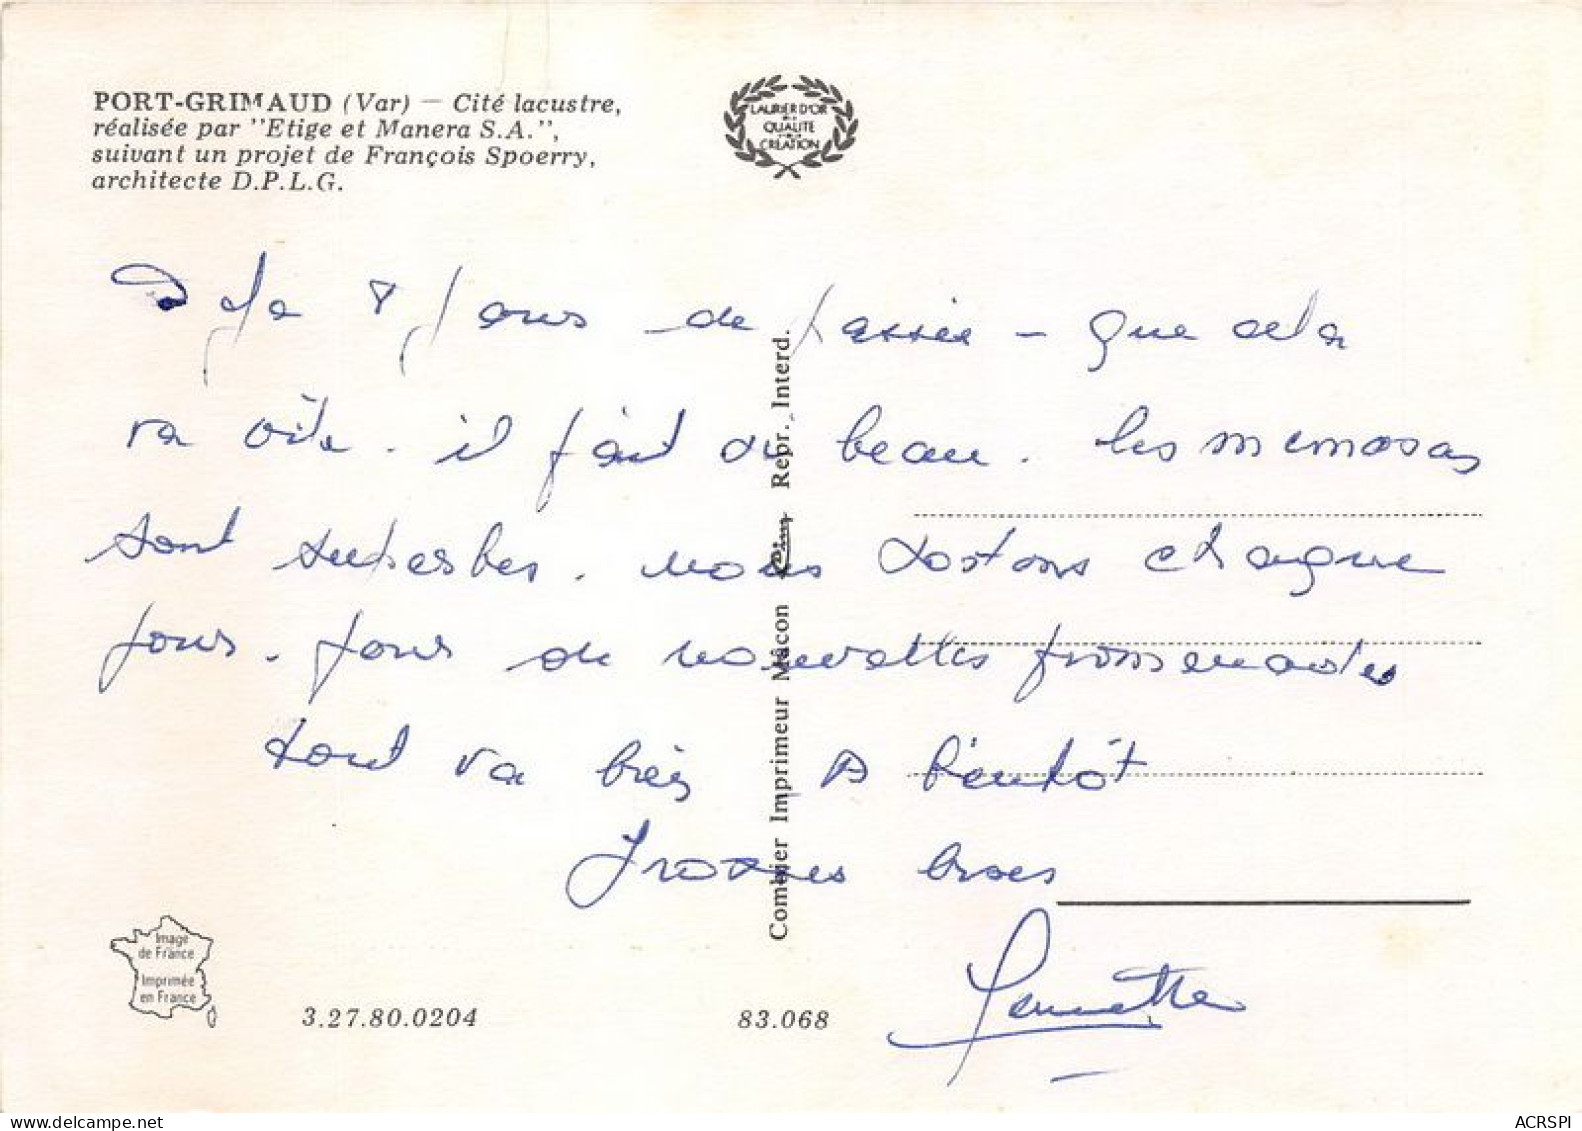 PORT-GRIMAUD (Var) — Cité lacustre,
réalisée par "Etige et Manera S.A.",
suivant un projet de François Spoerry,
architecte D.P.L.G.
LAURIER D'OR
DE LA
QUALITE
CREATION
Deja 8 jours de passés - que cela
va vite. il fait du beau. les mimosas
sont superbes. nous partons chaque
jour. pour de nouvelles promenades
tout va bien A bientôt
grosses bises
Jeannette
Combier Imprimeur Mâcon Cim Repr. Interd.
Image
de France
Imprimée
en France
3.27.80.0204
83.068
ACRSPI
www.delcampe.net